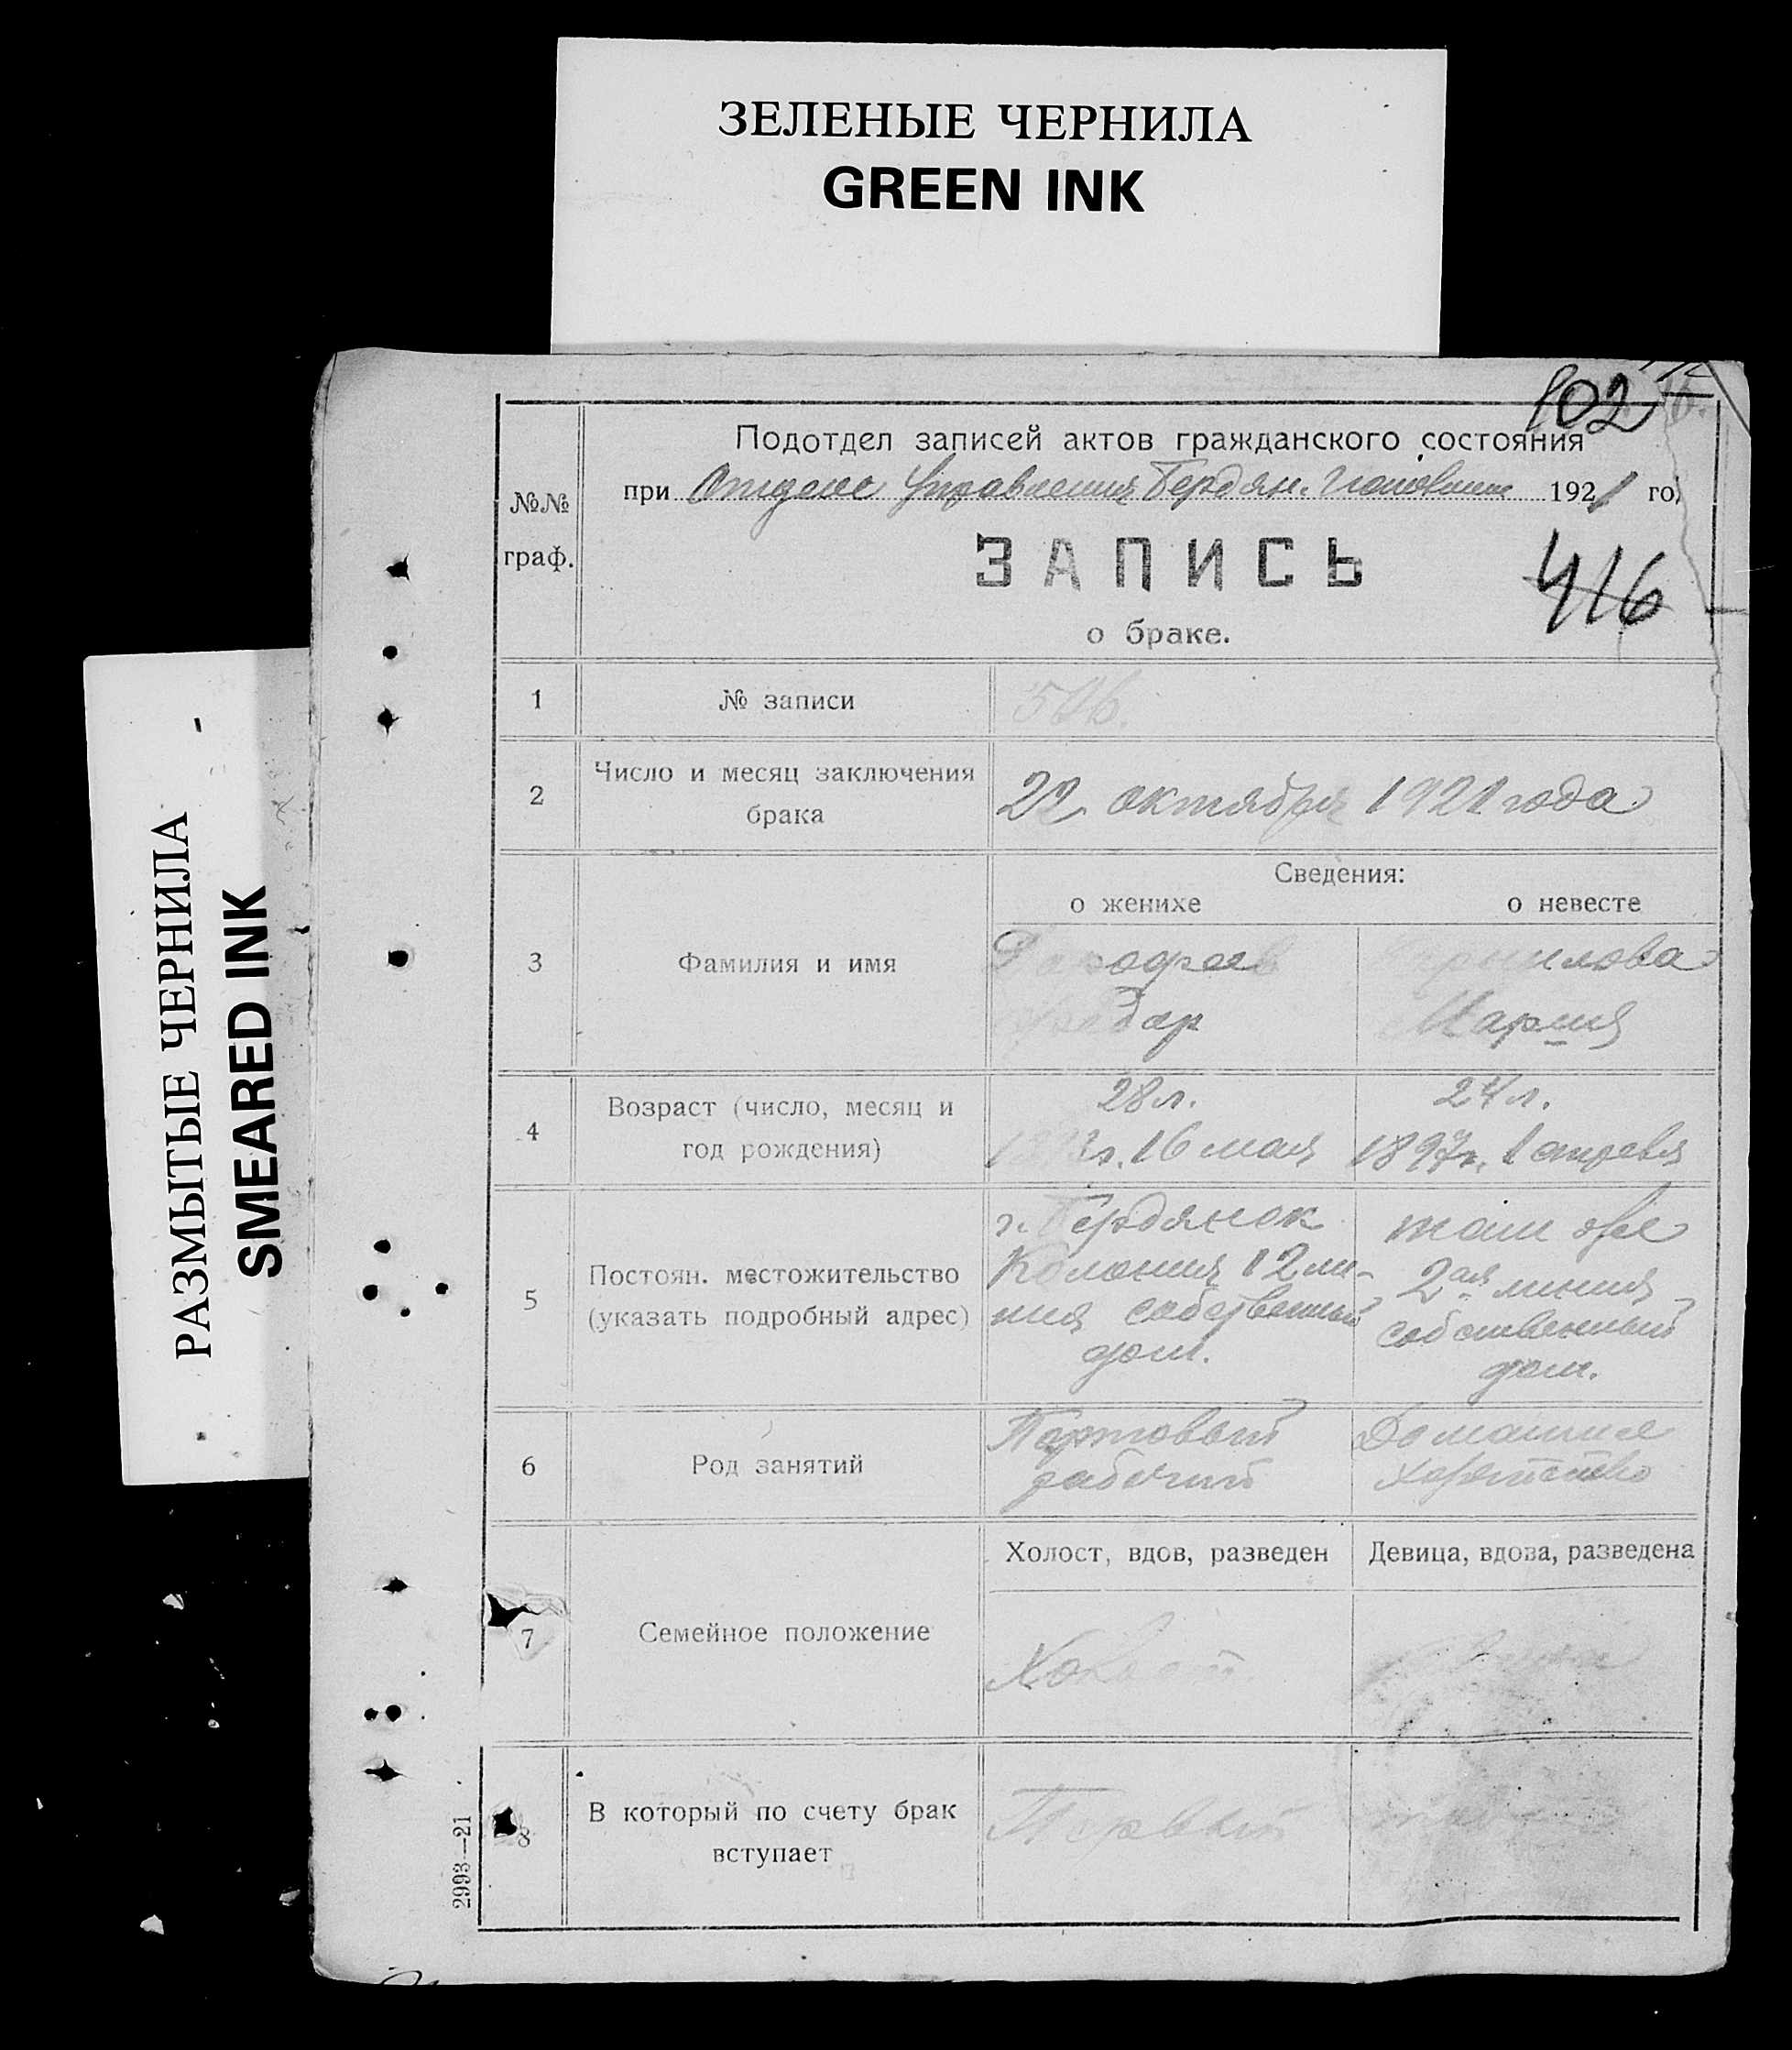 ЗЕЛЕНЫЕ ЧЕРНИЛА
GREEN INK
РАЗМЫТЫЕ ЧЕРНИЛА
SMEARED INK
102
Подотдел записей актов гражданского состояния
№№
граф.
при Отделе Управления Бердян. 1921 го
ЗАПИСЬ
416
о браке.
1
№ записи
2
Число и месяц заключения
брака
22 октября 1921 года
Сведения:
о женихе
о невесте
3
Фамилия и имя
Мария
4
Возраст (число, месяц и
год рождения)
28 л.
16 мая
24 л.
1897 г. 1 апреля
5
Постоян. местожительство
(указать подробный адрес)
г. Бердянск
Колония 12 ли-
ния собственный
дом.
там же
2ая линия
собственный
дом.
6
Род занятий
Портовый
рабочий
Домашнее
хозяйство
7
Семейное положение
Холост, вдов, разведен
Девица, вдова, разведена
Холост
8
В который по счету брак
вступает
Первый
2993—21